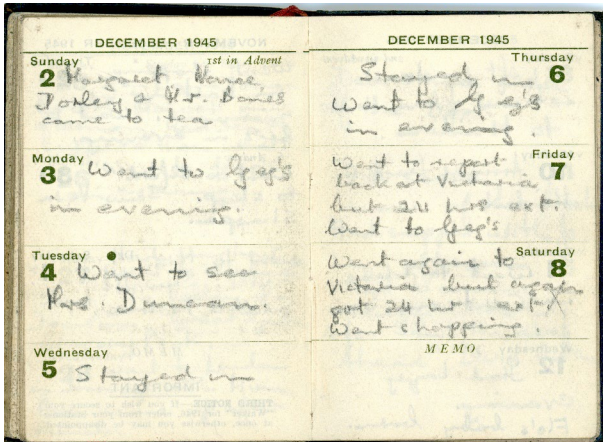 DECEMBER 1945
Sunday 1st in Advent
2 Margaret
& Mr.
came to tea
Monday
3 Went to Geg's
in evening.
Tuesday
4 Went to see
Mrs. Duncan.
Wednesday
5 Stayed in
DECEMBER 1945
Thursday
6 Stayed in
Went to Geg's
in evening.
Friday
7 Went to report
back at Victoria
but 24 hrs ext.
Went to Geg's
Saturday
8 Went again to
Victoria but again
got 24 hr ext.
Went shopping.
MEMO